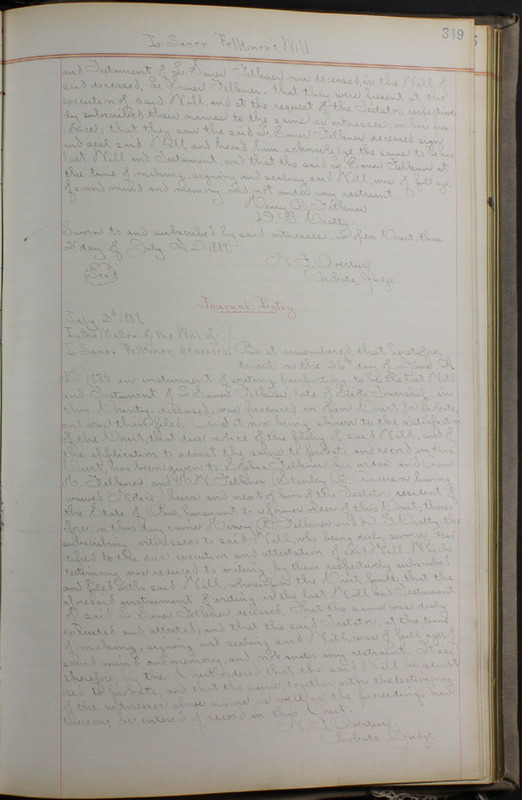 349
L. Saner Felkner's Will
and Testament of L. Saner Felkner now deceased, is the Will of
said deceased, L. Saner Felkner: that they were present at the
execution of said Will, and at the request of the Testator, respective-
ly subscribed their names to the same as witnesses, in his pres-
ence; that they saw the said L. Saner Felkner deceased sign
and seal said Will, and heard him acknowledge the same to be his
last Will and Testament, and that the said L. Saner Felkner at
the time of making, signing and sealing said Will, was of full age,
of sound mind and memory, and not under any restraint.
Henry B. Felkner
D. G.
Sworn to and subscribed by said witnesses, in open Court, this
2d day of July, A.D. 1889.
Seal
Probate Judge.
Journal Entry
July 2d 1889.
In the Matter of the Will of
L. Saner Felkner, deceased Be it remembered, that heretofore,
to wit: on the 26th day of June A.
D. 1889 an instrument of writing purporting to be the last Will
and Testament of L. Saner Felkner, late of Township, in
this County, deceased, was produced in open Court for Probate,
and was then filed. And it now being shown to the satisfaction
of the Court, that due notice of the filing of said Will, and of
the application to admit the same to probate and record in this
Court, has been given to Felkner his widow and
H. Felkner and W. N. Felkner (Stanley B. Anderson having
waived Notice) heirs and next of kin of the Testator, resident of
the State of Ohio, pursuant to a former order of this Court; there-
fore, on this day came Henry B. Felkner and D. G. the
subscribing witnesses to said Will, who being duly sworn, tes-
tified to the due execution and attestation of said Will. Which
testimony was reduced to writing, by them respectively subscribed
and filed with said Will; whereupon the Court finds that the
aforesaid instrument of writing is the last Will and Testament
of said L. Saner Felkner deceased, that the same was duly
executed and attested, and that the said Testator, at the time
of making, signing and sealing said Will, was of full age, of
sound mind and memory, and not under any restraint. It is
therefore by the Court ordered that the said Will be admit-
ted to probate, and that the same, together with the testimony
of the witnesses above named, as well as the proceedings had
thereon, be entered of record in this Court.
Probate Judge.